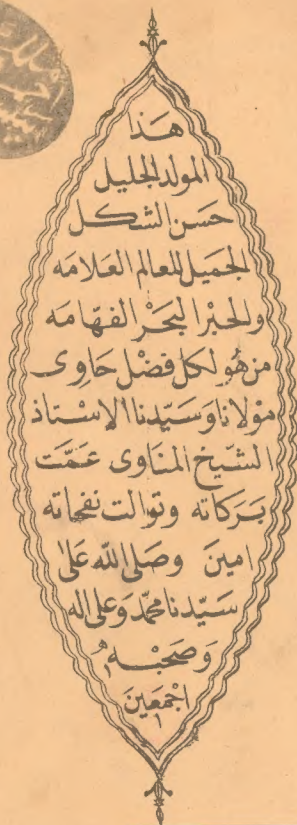 هذا
المولد الجليل
حسن الشكل
الجميل للعالم العلامه
والحبر البحر الفهامه
من هو لكل فضل حاوى
مولانا وسيدنا الاستاذ
الشيخ المناوى عمت
بركاته وتوالت نفحاته
امين وصلى الله على
سيدنا محمد وعلى اله
وصحبه
اجمعين